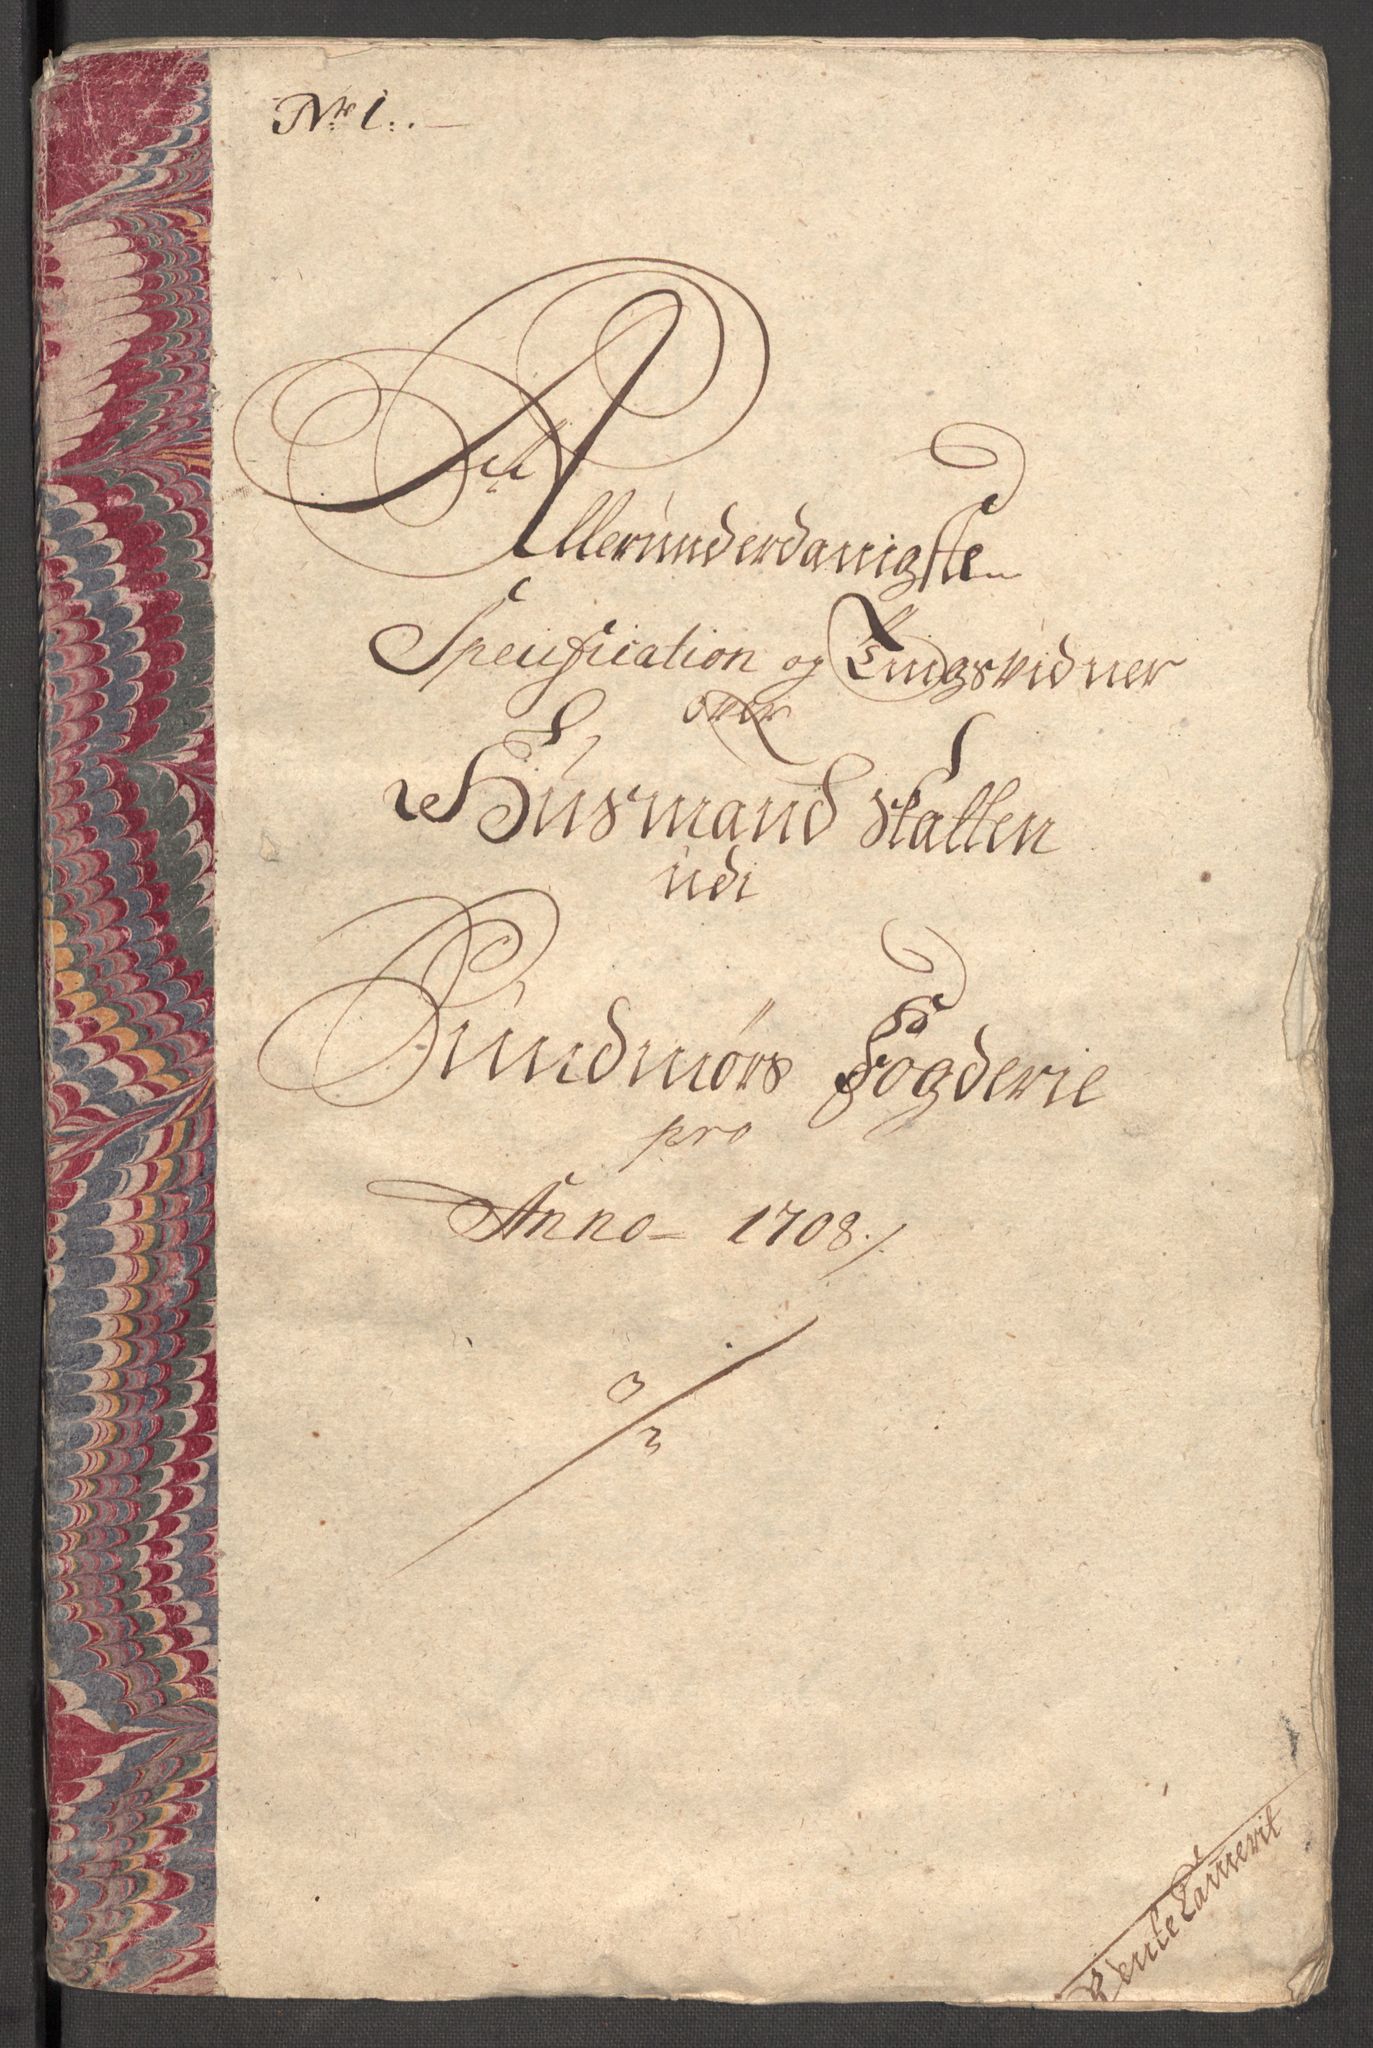 Nr 1:.
Allerunderdanigste
Specification og Tingsvidner
over
Husmand Skatten
udi
Sundmörs Fogderie
pro
Anno 1708 ./.
3
2
Rente Cammerit